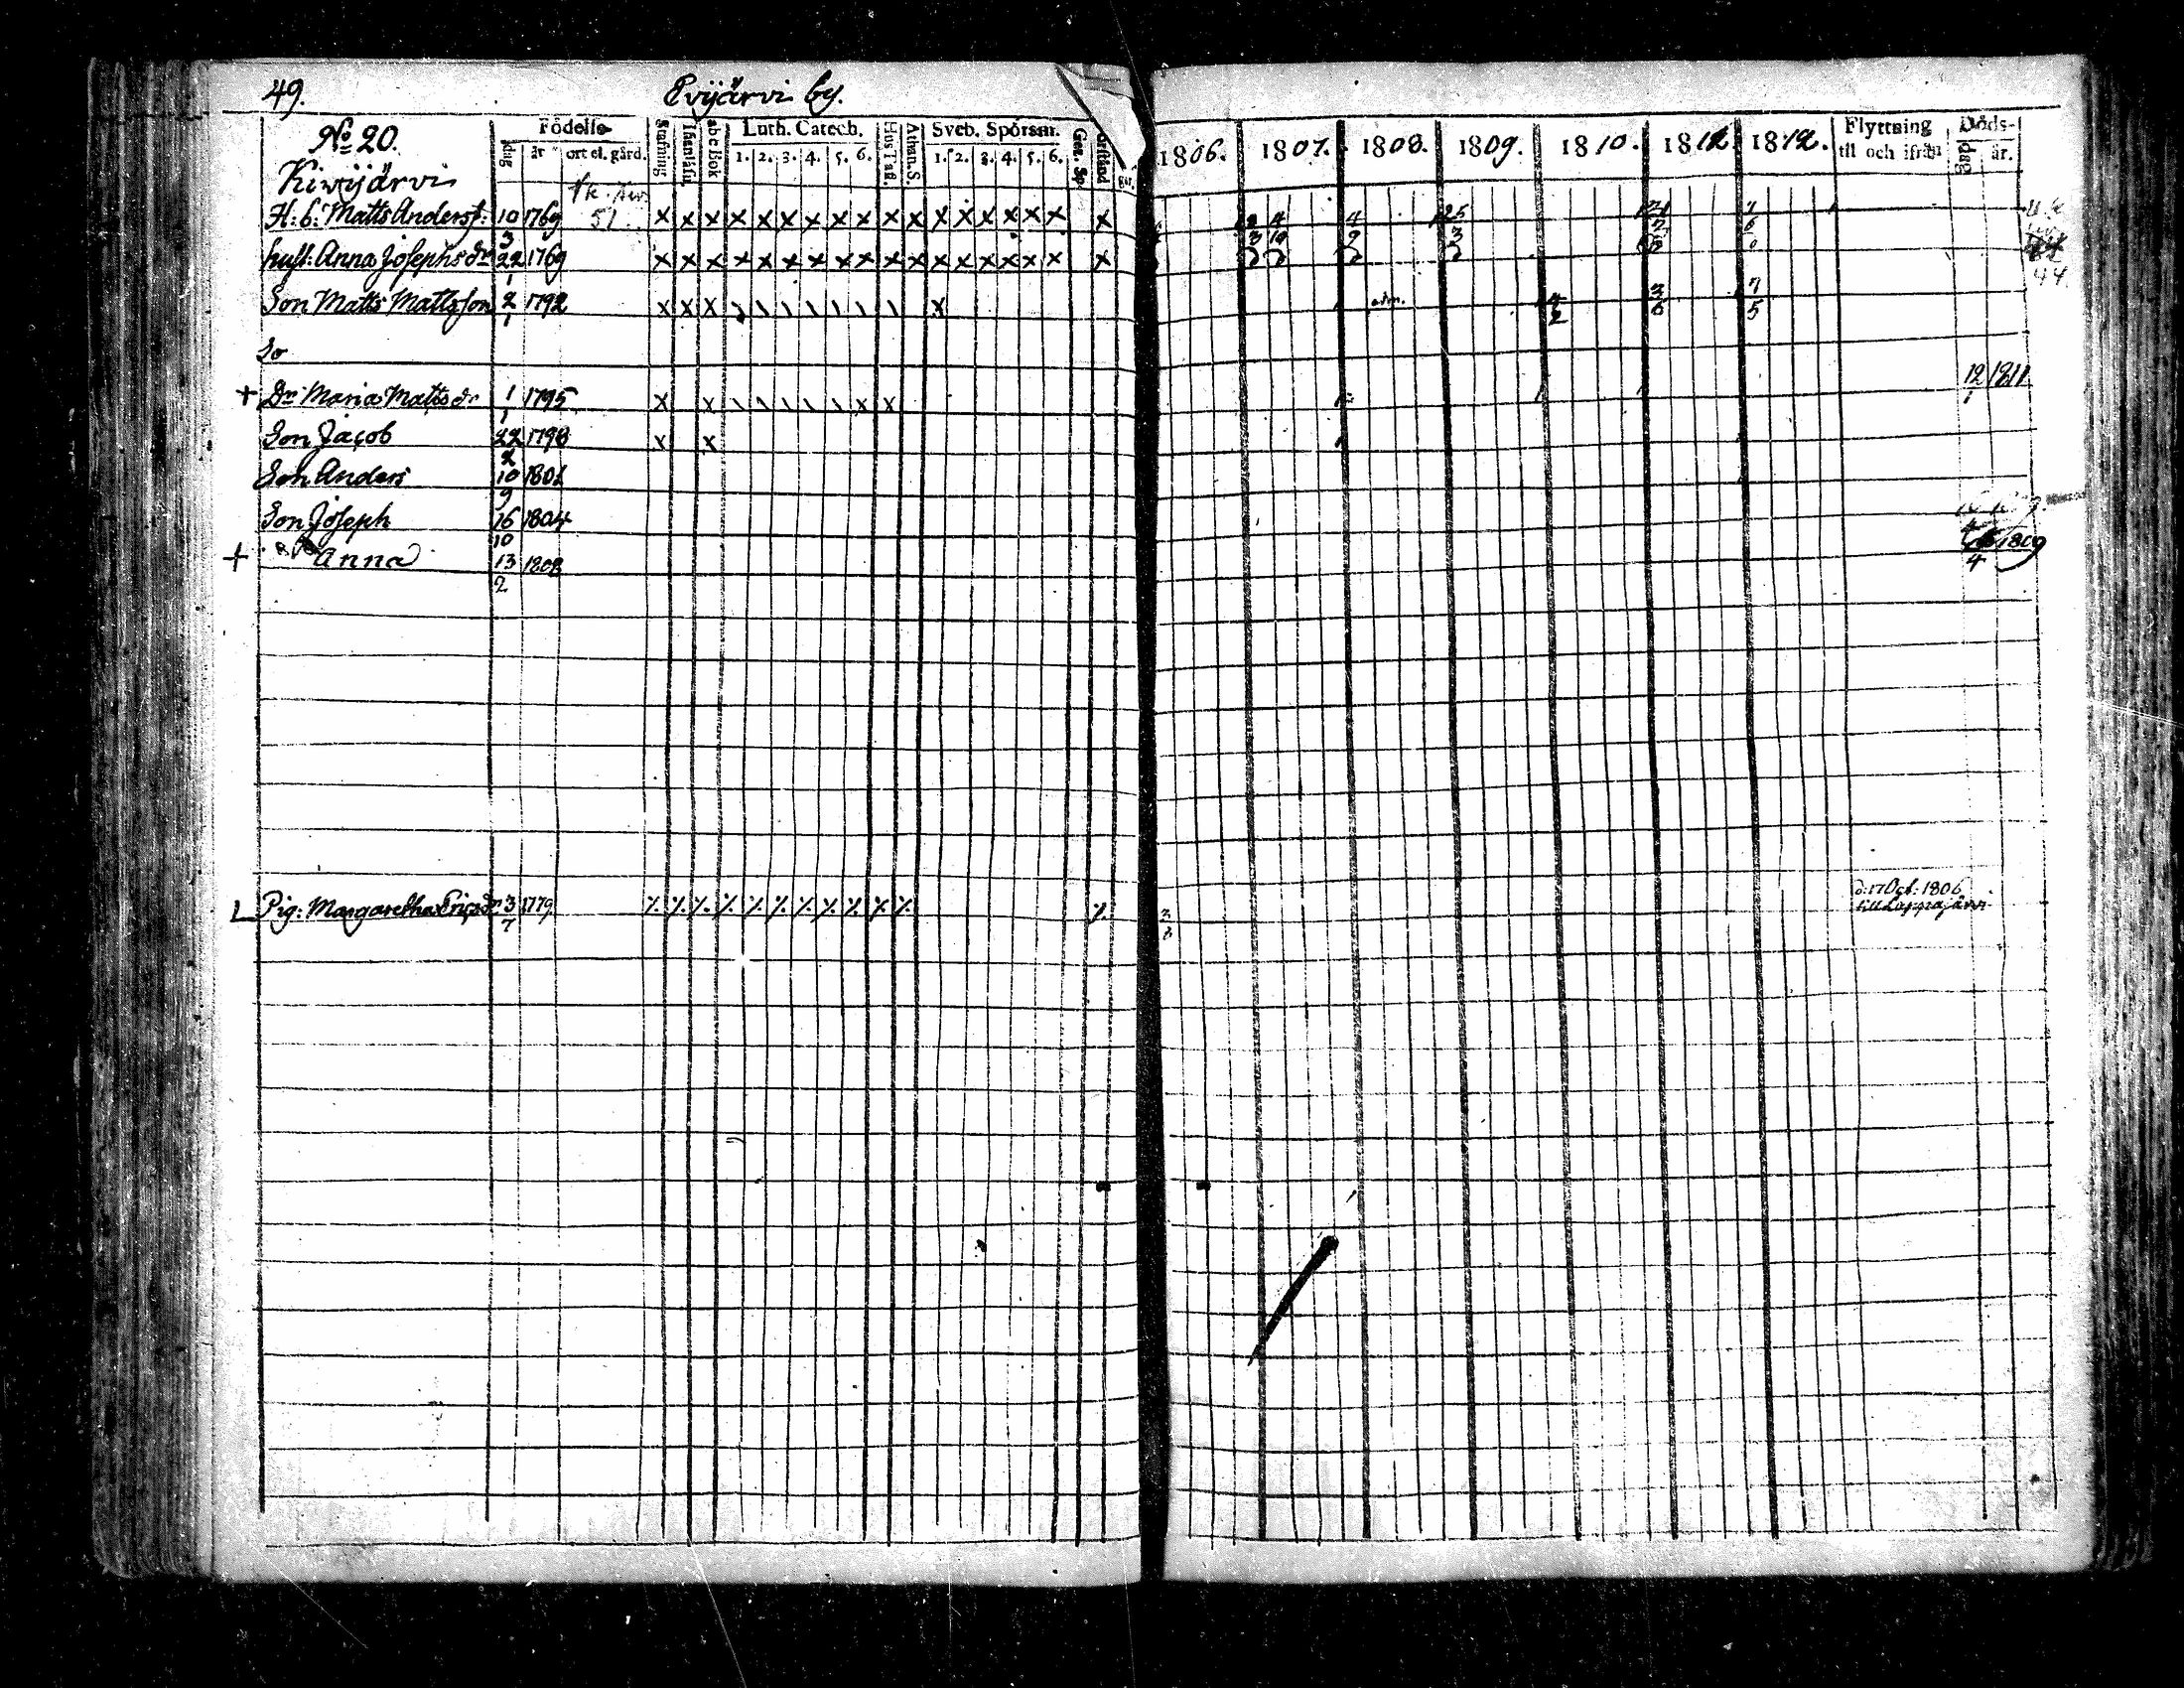 49. Evijärvi by.
No 20. Födelse- Stafning Abc Bok Luth. Catech. Hus Tafl. Athan. S. Sveb. Spörsm. Förstånd 1806. 1807. 1808. 1809. 1810. 1812 1812. Flyttning Döds-
dag år ort el. gård. 1. 2. 3. 4. 5. 6. 1. 2. 3. 4. 5. 6. till och ifrån dag år.
Kiwijärvi
H:b: Matts Anderss: 10/3 1769 51 x x x x x x x x x x x x x x x x x x
hust: Anna Josephsdr 22/1 1769 x x x x x x x x x x x x x x x x x x 44
Son Matts Mattsson 2/1 1792 x x x \ \ \ \ \ \ \ x adm. 4/2 7/5
So
+ Dr Maria Mattsdr 1/1 1795 x x \ \ \ \ \ x x 12/1 1811
Son Jacob 22/2 1798 x x
Son Anders 10/9 1801
Son Joseph 16/10 1804
+ Anna 13/2 1808 4 1809
L Pig: Margaretha Ericsdr 3/7 1779 ٪ ٪ ٪ ٪ ٪ ٪ ٪ ٪ ٪ ٪ ٪ ٪ d: 17 Oct: 1806
till Lappajärvi